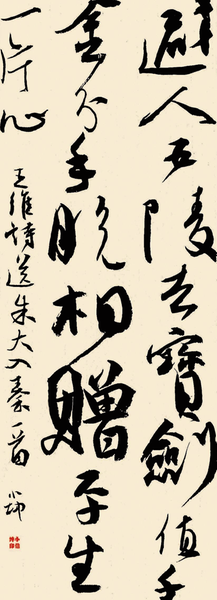 遊人五陵去寶劍值千
金分手脫相贈平生
一片心
王維詩送朱大入秦一首